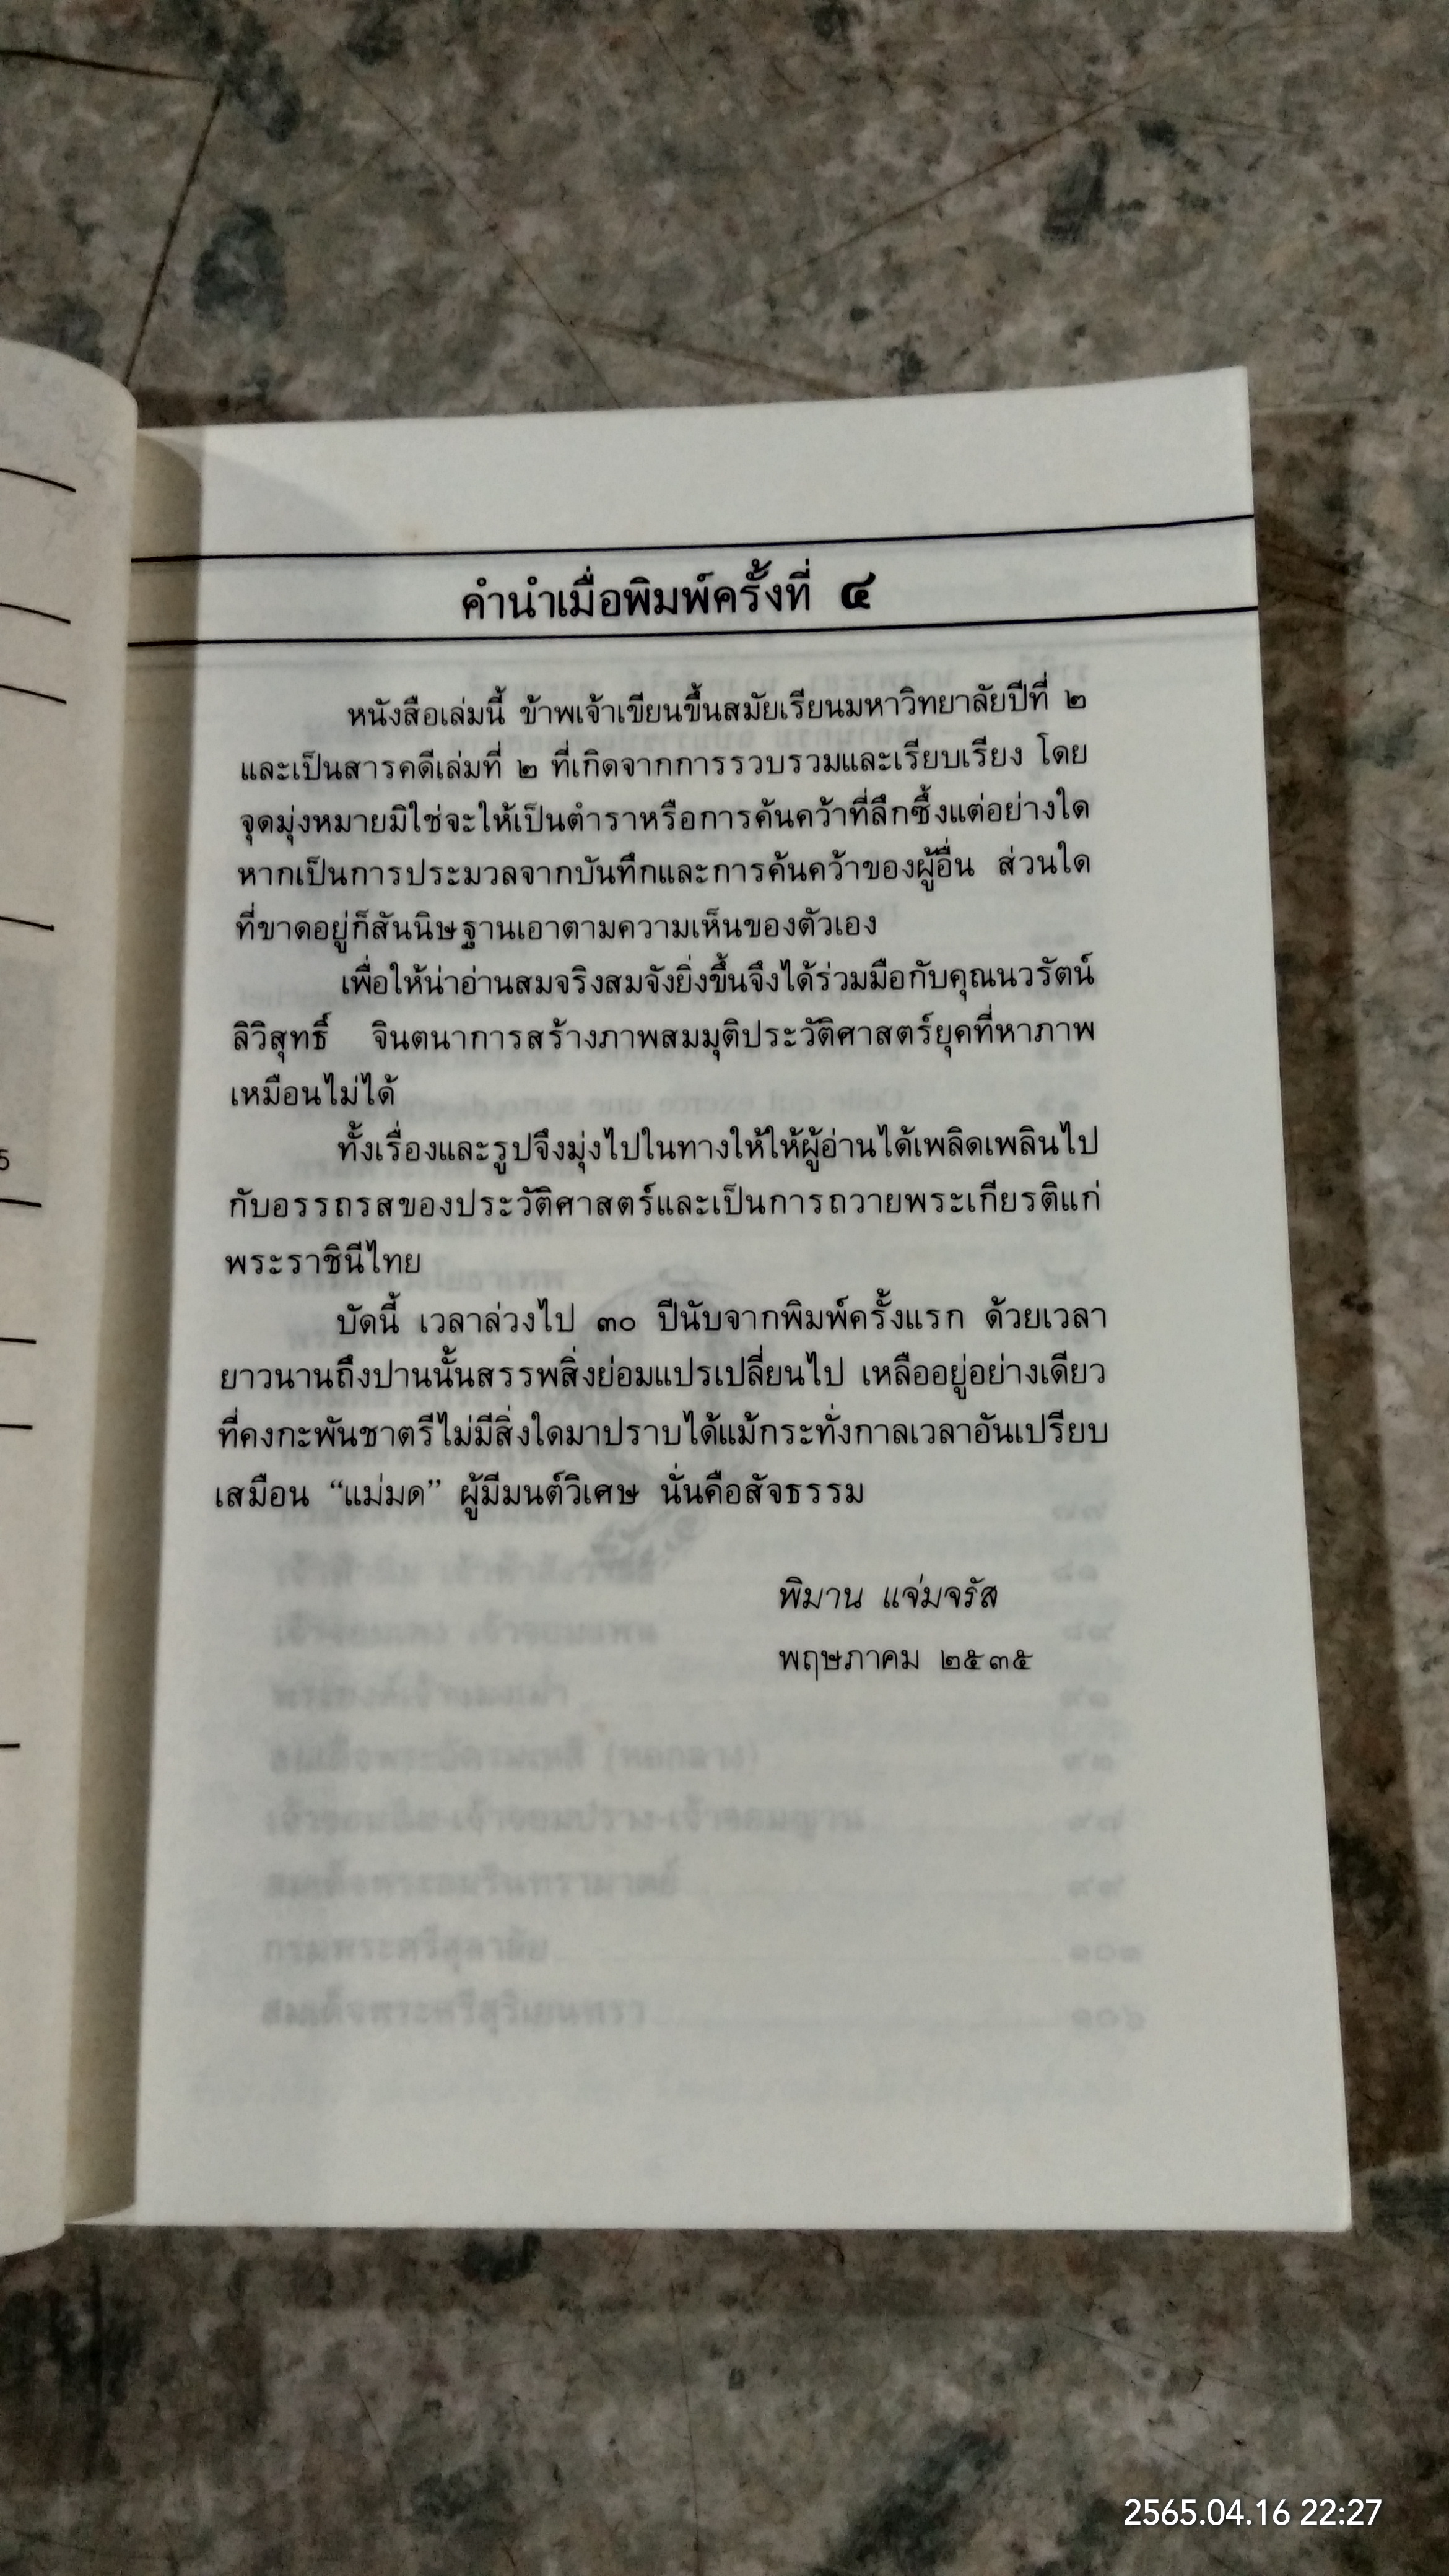 คำนำเมื่อพิมพ์ครั้งที่ ๔
หนังสือเล่มนี้ ข้าพเจ้าเขียนขึ้นสมัยเรียนมหาวิทยาลัยปีที่ ๒
และเป็นสารคดีเล่มที่ ๒ ที่เกิดจากการรวบรวมและเรียบเรียง โดย
จุดมุ่งหมายมิใช่จะให้เป็นตำราหรือการค้นคว้าที่ลึกซึ้งแต่อย่างใด
หากเป็นการประมวลจากบันทึกและการค้นคว้าของผู้อื่น ส่วนใด
ที่ขาดอยู่ก็สันนิษฐานเอาตามความเห็นของตัวเอง
เพื่อให้น่าอ่านสมจริงสมจังยิ่งขึ้นจึงได้ร่วมมือกับคุณนวรัตน์
ลิวิสุทธิ์ จินตนาการสร้างภาพสมมุติประวัติศาสตร์ยุคที่หาภาพ
เหมือนไม่ได้
ทั้งเรื่องและรูปจึงมุ่งไปในทางให้ให้ผู้อ่านได้เพลิดเพลินไป
กับอรรถรสของประวัติศาสตร์และเป็นการถวายพระเกียรติแก่
พระราชินีไทย
บัดนี้ เวลาล่วงไป ๓๐ ปีนับจากพิมพ์ครั้งแรก ด้วยเวลา
ยาวนานถึงปานนั้นสรรพสิ่งย่อมแปรเปลี่ยนไป เหลืออยู่อย่างเดียว
ที่คงกะพันชาตรีไม่มีสิ่งใดมาปราบได้แม้กระทั่งกาลเวลาอันเปรียบ
เสมือน “แม่มด” ผู้มีมนต์วิเศษ นั่นคือสัจธรรม
พิมาน แจ่มจรัส
พฤษภาคม ๒๕๓๕
2565.04.16 22:27